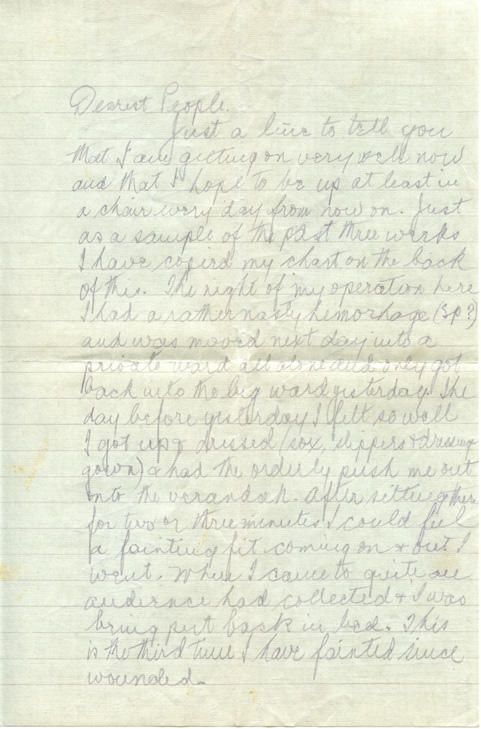 Dearest People.
Just a line to tell you
that I am getting on very well now
and that I hope to be up at least in
a chair every day from now on. Just
as a sample of the past three weeks
I have copied my chart on the back
of this. The night of my operation here
I had a rather nasty hemorhage (sp?)
and was moved next day into a
private ward all alone and only got
back into the big ward yesterday. The
day before yesterday I felt so well
I got up & dressed (sox, slippers & dressing
gown) & had the orderly push me out
onto the verandah. After sitting there
for two or three minutes I could feel
a fainting fit coming on & out I
went. When I came to quite an
audience had collected & I was
being put back in bed. This
is the third time I have fainted since
wounded.